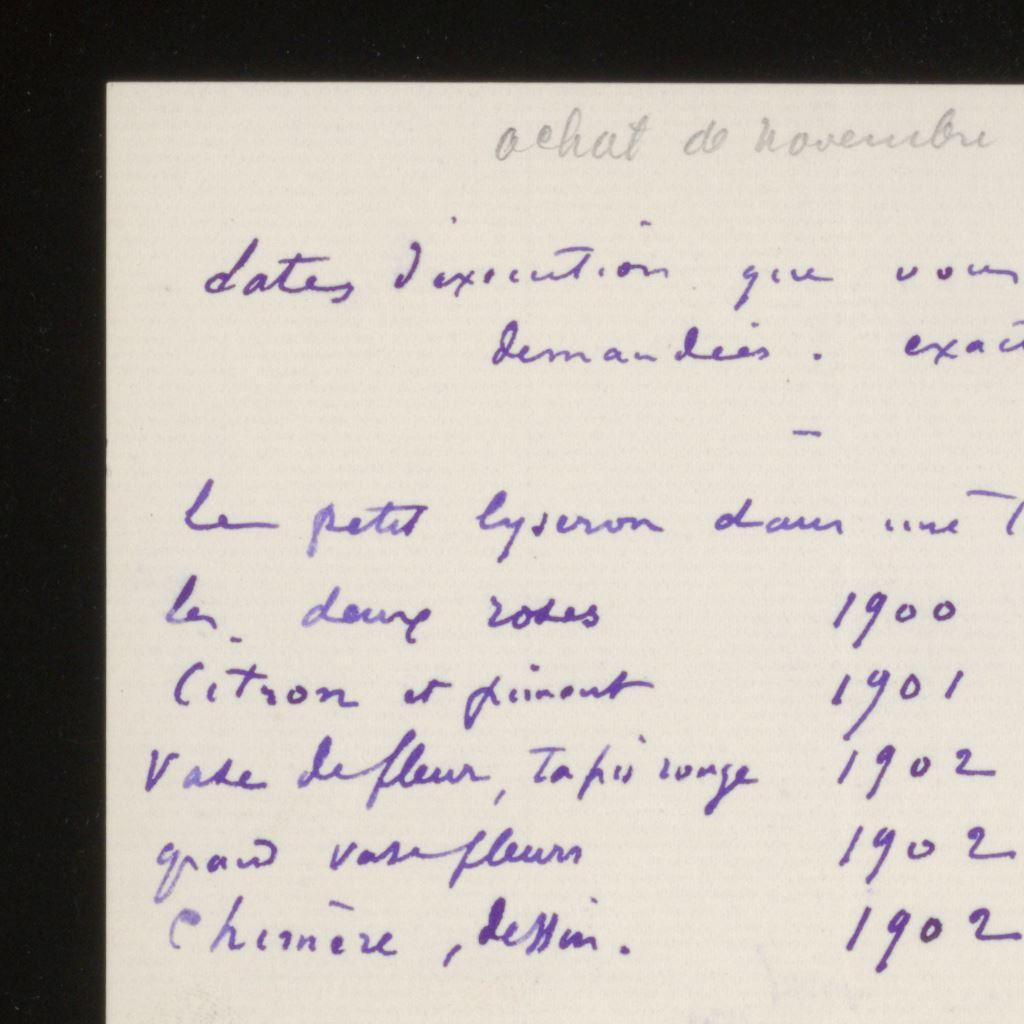 achat de novembre
dates d'exécution que vous
demandées. exact
—
Le petit lyseron dans une
les deux roses 1900
Citron et piment 1901
Vase de fleur, tapis rouge 1902
grand vase fleurs 1902
Chimère, dessin. 1902